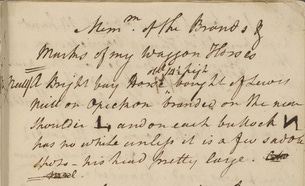 Mem.m of the Brands &
Marks of my Waggon Horses
Bright bay Horse high bought of Lewis
Neill on Opechon branded on the near
shoulder L and on each buttock N
has no white unless it is a few saddle
spots – his head pretty large.